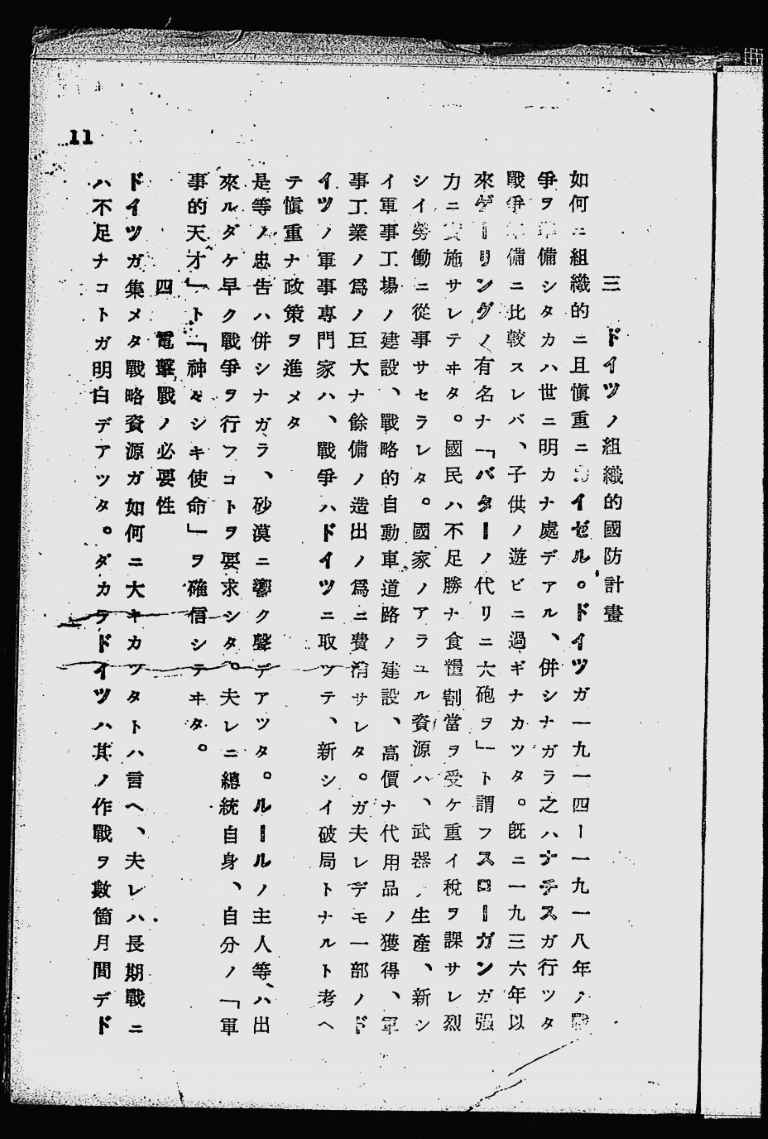 11
三 ドイツノ組織的國防計畫
如何ニ組織的ニ且愼重ニカイゼル。ドイツガ一九一四ー一九一八年ノ戰
爭ヲ準備シタカハ世ニ明カナ處デアル、併シナガラ之ハナチスガ行ツタ
戰爭準備ニ比較スレバ、子供ノ遊ビニ過ギナカツタ。既ニ一九三六年以
來ゲーリングノ有名ナ「バターノ代リニ大砲ヲ」ト謂フスローガンガ强
力ニ實施サレテヰタ。國民ハ不足勝ナ食糧割當ヲ受ケ重イ稅ヲ課サレ烈
シイ勞働ニ從事サセラレタ。國家ノアラユル資源ハ、武器ノ生產、新シ
イ軍事工場ノ建設、戰略的自動車道路ノ建設、高價ナ代用品ノ獲得、軍
事工業ノ爲ノ巨大ナ餘備ノ造出ノ爲ニ費消サレタ。ガ夫レデモ一部ノド
イツノ軍事專門家ハ、戰爭ハドイツニ取ツテ、新シイ破局トナルト考ヘ
テ愼重ナ政策ヲ進メタ
是等ノ忠吿ハ併シナガラ、砂漠ニ響ク聲デアツタ。ルールノ主人等ハ出
來ルダケ早ク戰爭ヲ行フコトヲ要求シタ。夫レニ總統自身、自分ノ「軍
事的天才」ト「神々シキ使命」ヲ確信シテヰタ。
四 電擊戰ノ必要性
ドイツガ集メタ戰略資源ガ如何ニ大キカツタトハ言ヘ、夫レハ長期戰ニ
ハ不足ナコトガ明白デアツタ。ダカラドイツハ其ノ作戰ヲ數箇月間デド